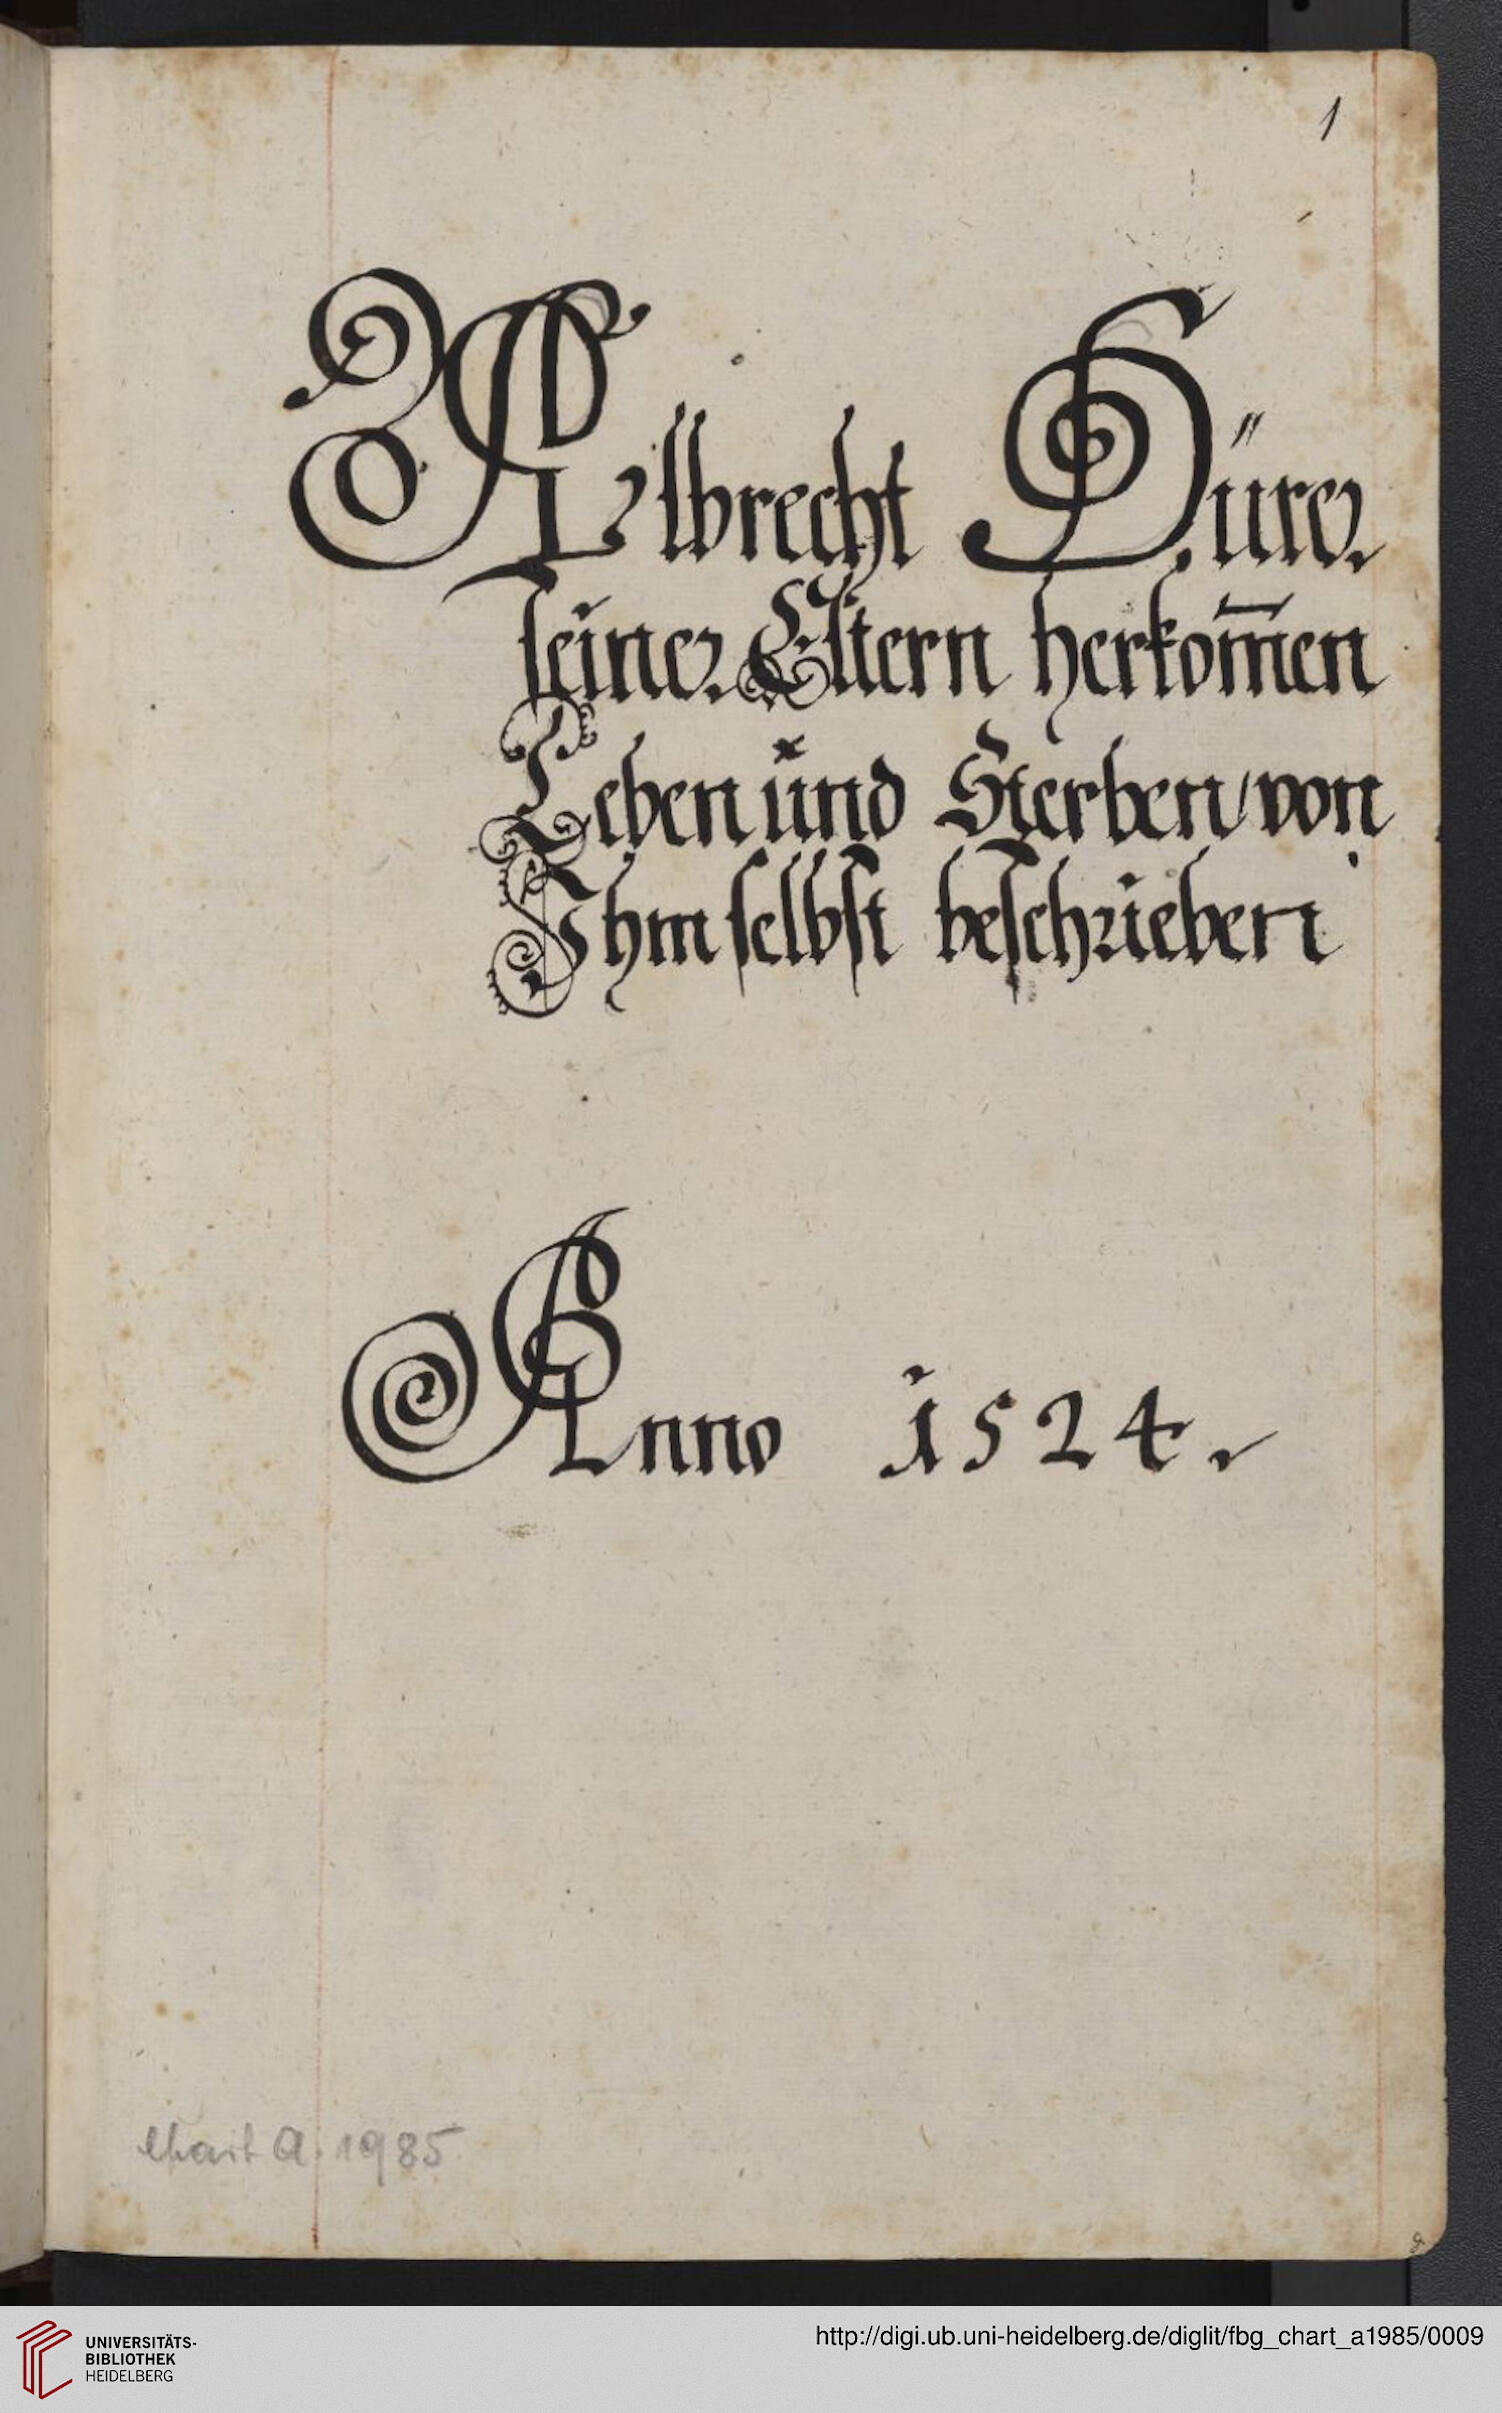 1
Albrecht Dürer
seiner Eltern herkom̄en
Leben und Sterben, von
Ihm selbst beschrieben
Anno 1524.
Chart A. 1985
UNIVERSITÄTS-
BIBLIOTHEK
HEIDELBERG
http://digi.ub.uni-heidelberg.de/diglit/fbg_chart_a1985/0009